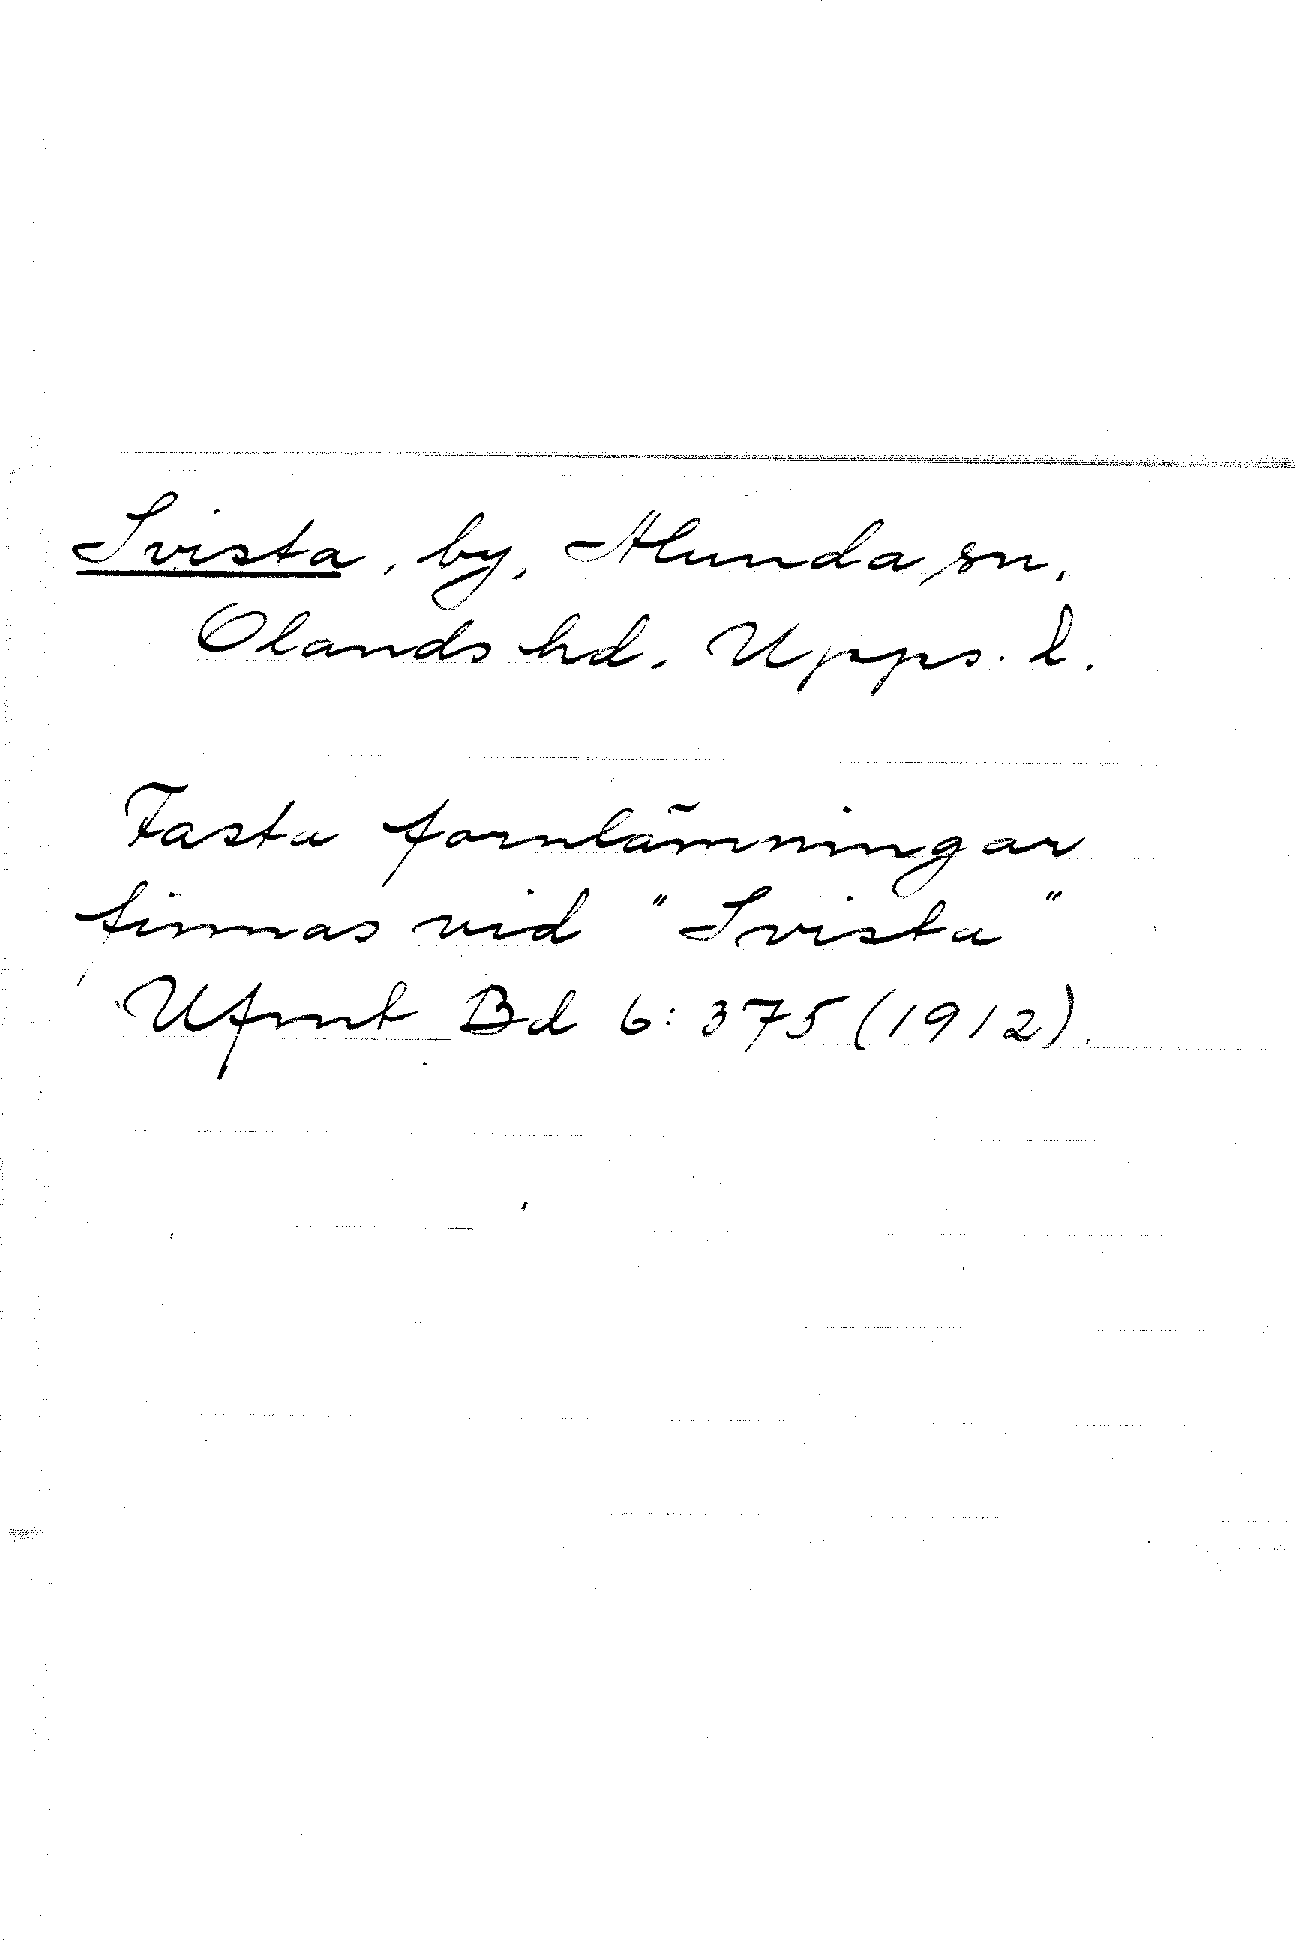 Svista, by, Alunda sn,
Olands hd. Upps. l.
Fasta fornlämningar
finnas vid "Svista"
Ufmt Bd 6: 375 (1912).